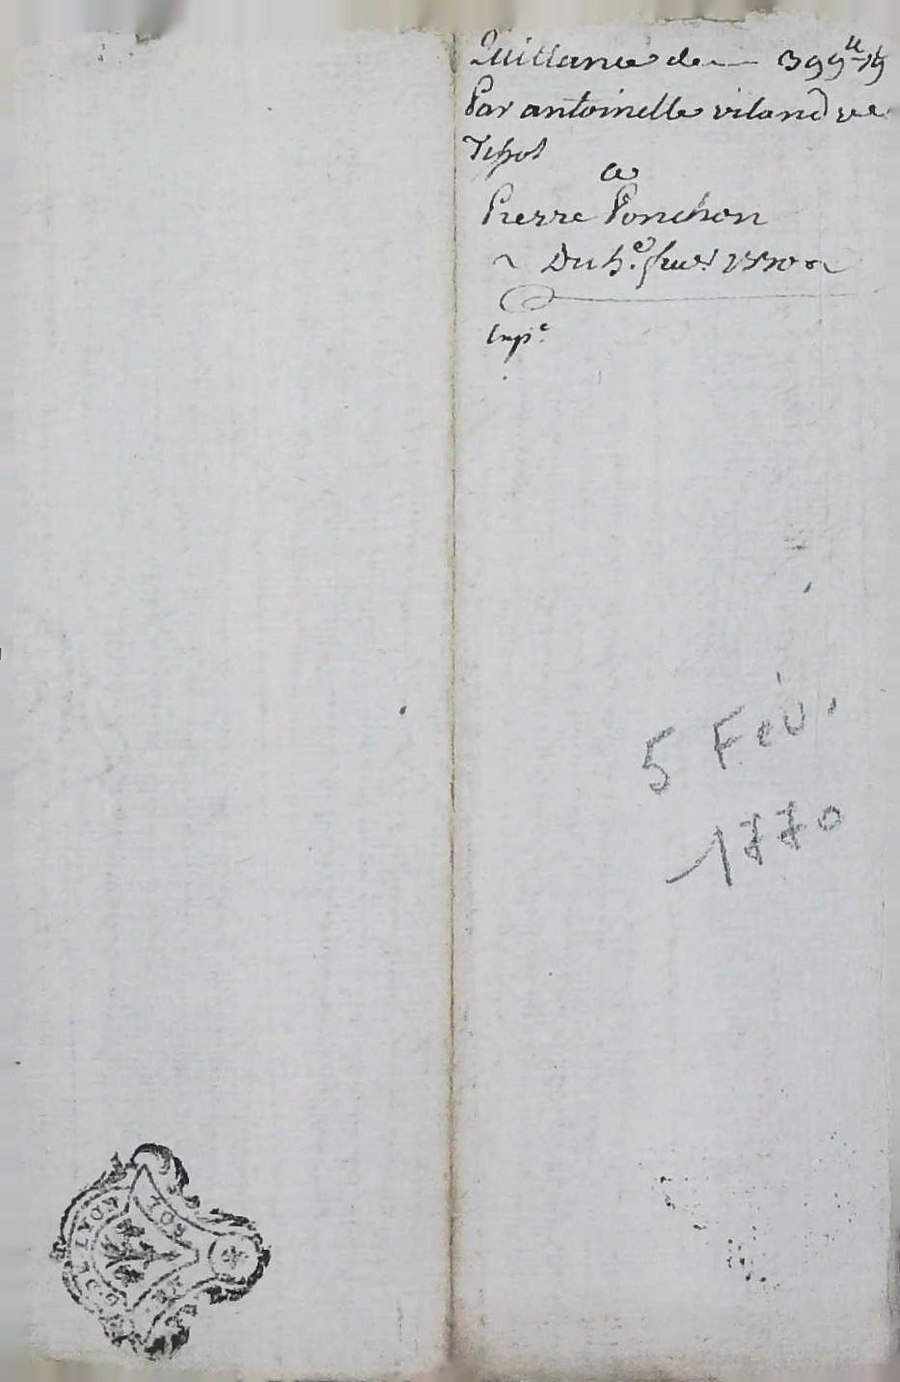 Quittance de — 399ᵗᵗ 19
Par antoinette viland ve
Tipot
a
Pierre Ponchon
Du 5.e 1770
Exp.e
5 Fév.
1770
G. DE LYON
SOL